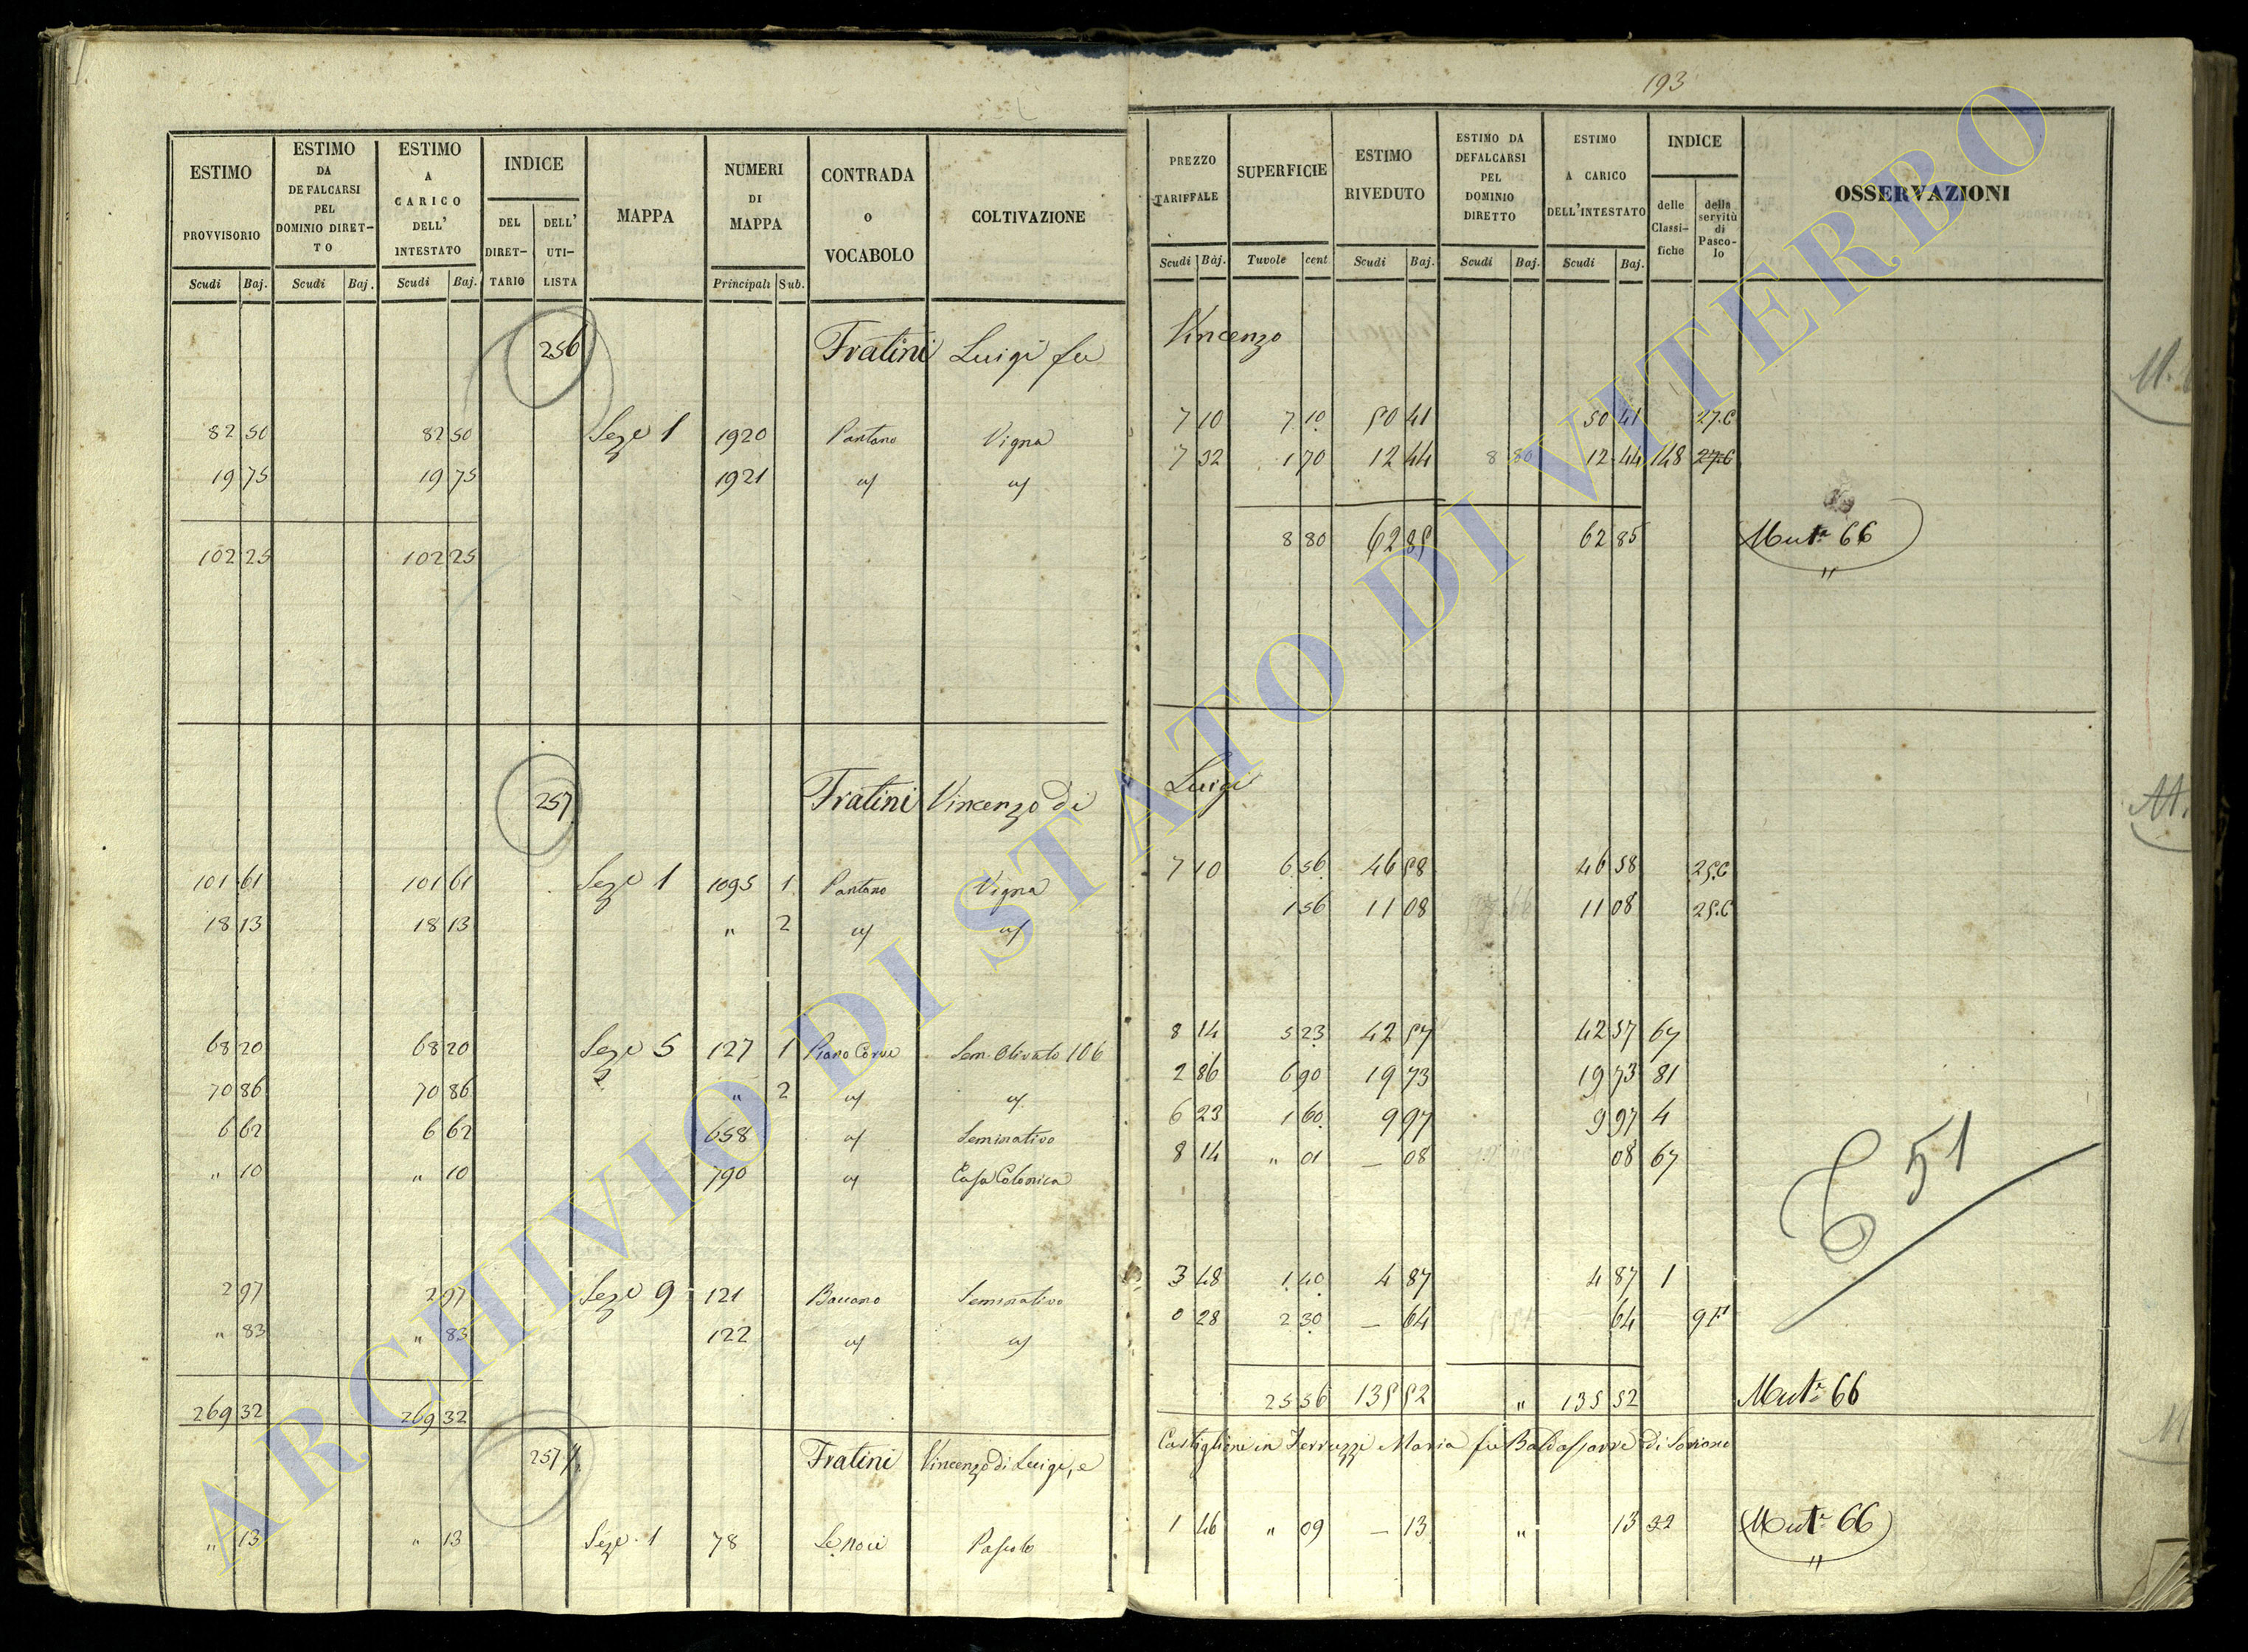 193
ESTIMO PROVVISORIO
ESTIMO DA DEFALCARSI PEL DOMINIO DIRET-TO
ESTIMO A CARICO DELL' INTESTATO
INDICE
DEL DIRET-TARIO
DELL' UTI-LISTA
MAPPA
NUMERI DI MAPPA
CONTRADA O VOCABOLO
COLTIVAZIONE
PREZZO TARIFFALE
SUPERFICIE
ESTIMO RIVEDUTO
ESTIMO DA DEFALCARSI PEL DOMINIO DIRETTO
ESTIMO A CARICO DELL'INTESTATO
INDICE
delle Classi-fiche
della servitù di Pasco-lo
OSSERVAZIONI
Scudi Baj. Scudi Baj. Scudi Baj. Principali Sub. Scudi Baj. Tavole cent Scudi Baj. Scudi Baj. Scudi Baj.
256 Fratini Luigi fu Vincenzo
82 50 82 50 Seze 1 1920 Pantano Vigna 7 10 7 10 50 41 50 41 27.C
19 75 19 75 1921 " " 7 32 1 70 12 44 8 80 12 44 148 27.C
102 25 102 25 8 80 62 85 62 85 Mutr 66
257 Fratini Vincenzo di Luigi
101 61 101 61 Seze 1 1095 1 Pantano Vigna 7 10 6 56 46 58 46 58 25.C
18 13 18 13 " 2 " " 1 56 11 08 11 08 25.C
68 20 68 20 Seze 5 127 1 Piano Corve Sem. Olivato 106 8 14 5 23 42 57 42 57 67
70 86 70 86 " 2 " " 2 86 6 90 19 73 19 73 81
6 62 6 62 658 " Seminativo 6 23 1 60 9 97 9 97 4
" 10 " 10 790 " Casa Colonica 8 14 " 01 – 08 08 67
C 51
2 97 2 97 Seze 9 121 Baccano Seminativo 3 48 1 40 4 87 4 87 1
" 83 " 83 122 " " 0 28 2 30 – 64 64 9 F
269 32 269 32 25 56 135 52 " 135 52 Mutr 66
257 1/2 Fratini Vincenzo di Luigi, e Castiglioni in Ferruzzi Maria fu Baldassarre di Soriano
" 13 " 13 Seze 1 78 Le Noci Pascolo 1 46 " 09 – 13 " 13 32 Mutr 66
ARCHIVIO DI STATO DI VITERBO